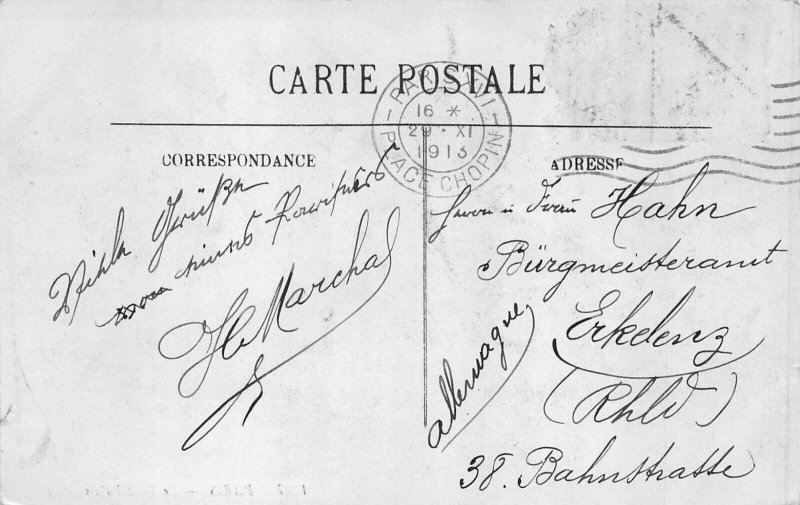 CARTE POSTALE
PARIS XVI
16 *
29 · XI
1913
PLACE CHOPIN
CORRESPONDANCE
ADRESSE
Viele Grüße
eines Pariser's
H Marchal
Herrn u Frau Hahn
Bürgmeisteramt
Erkelenz
(Rhld)
38. Bahnstrasse
Allemagne
PARIS